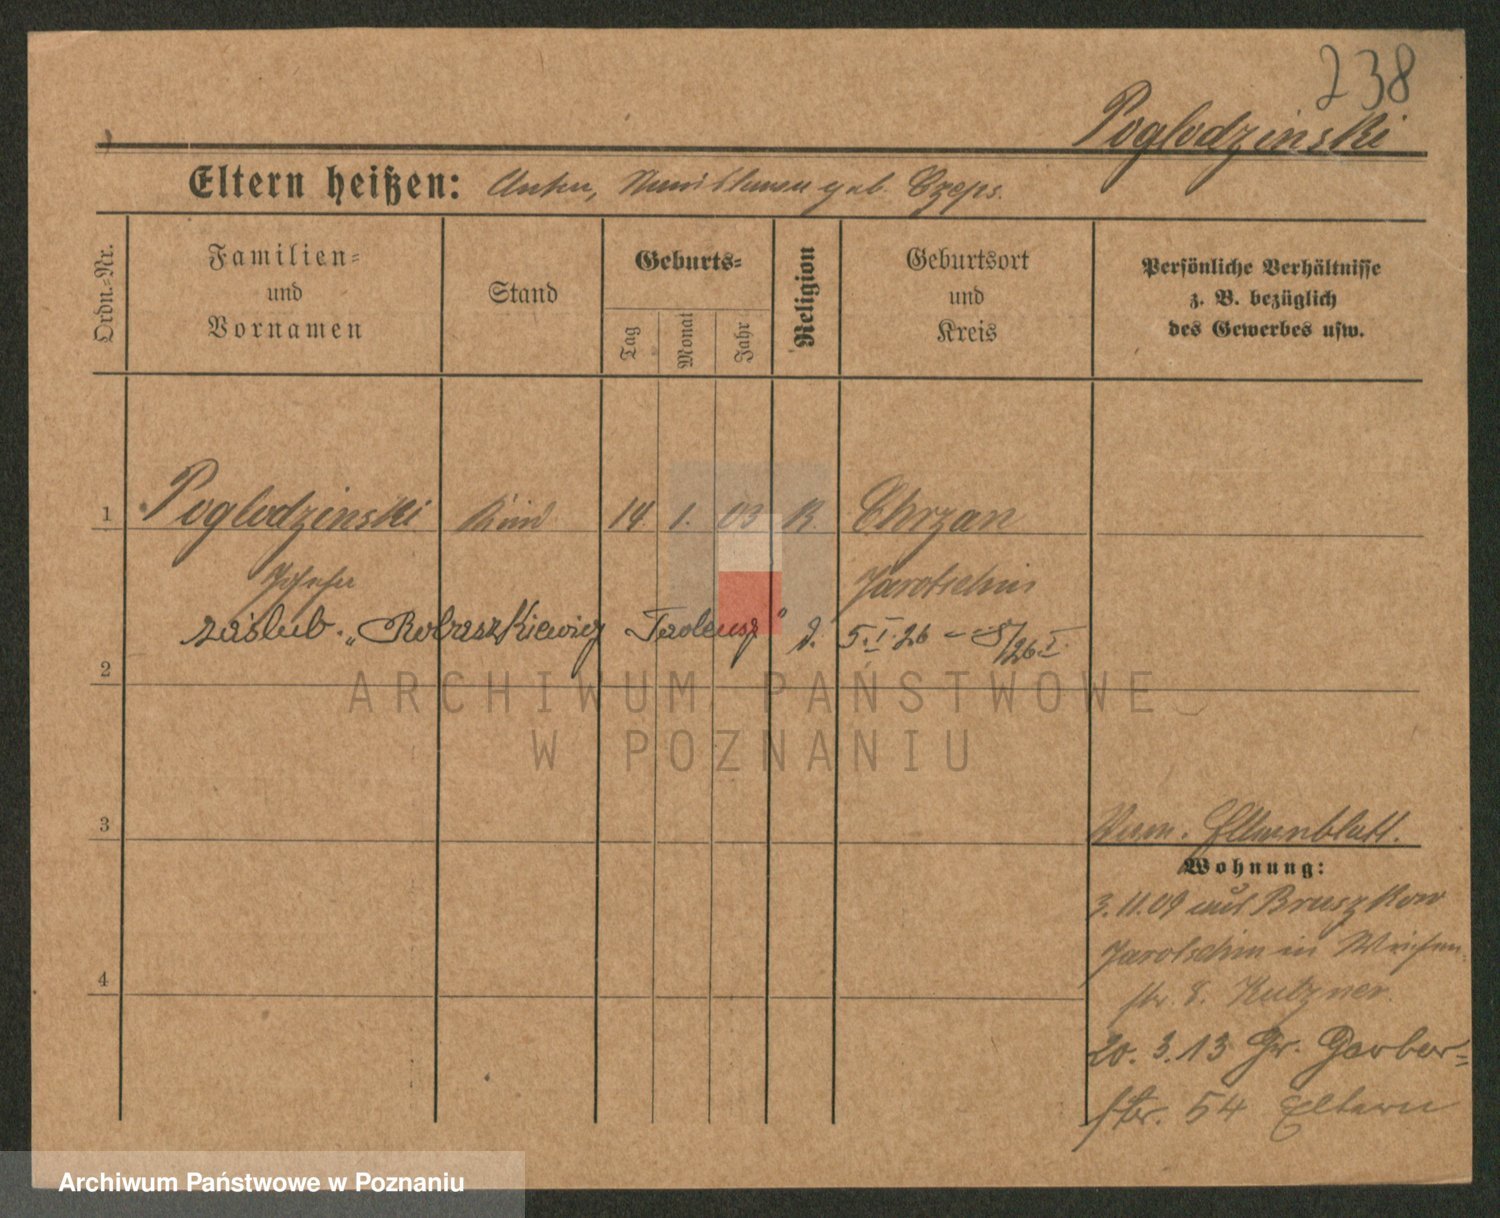 238
Poglodzinski
Eltern heißen: Anton, geb. Czeps.
Ordn.=Nr.
Familien=
und
Vornamen
Stand
Geburts=
Tag
Monat
Jahr
Religion
Geburtsort
und
Kreis
Persönliche Verhältnisse
z. B. bezüglich
des Gewerbes usw.
1 Poglodzinski Kind 14. 1. 03 K. Chrzan
Josefa Jarotschin
zaślub. „Robaszkiewicz Tadeusz" d. 5.I.26 - 5/26 I.
2
ARCHIWUM PAŃSTWOWE
W POZNANIU
3
Elternblatt.
Wohnung:
3.11.09 aus Bruszkow
Jarotschin in Wiesen
str. 8. Kutzner.
4
20. 3. 13 Gr. Gerber=
str. 54 Eltern
Archiwum Państwowe w Poznaniu